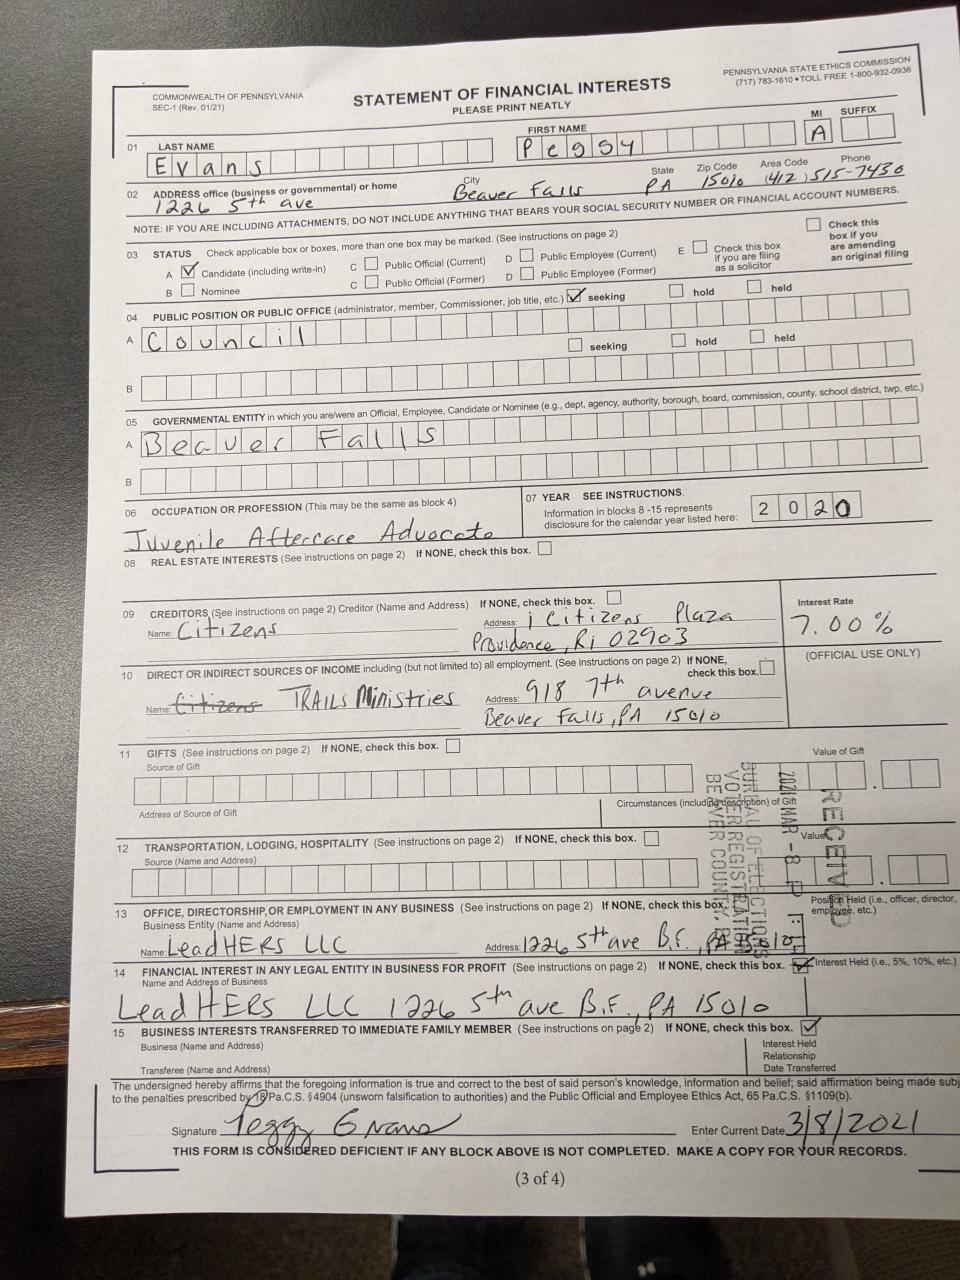 COMMONWEALTH OF PENNSYLVANIA
SEC-1 (Rev. 01/21)
STATEMENT OF FINANCIAL INTERESTS
PLEASE PRINT NEATLY
PENNSYLVANIA STATE ETHICS COMMISSION
(717) 783-1610 • TOLL FREE 1-800-932-0936
01 LAST NAME FIRST NAME MI SUFFIX
Evans Peggy A
02 ADDRESS office (business or governmental) or home City State Zip Code Area Code Phone
1226 5th ave Beaver Falls PA 15010 (412) 515-7430
NOTE: IF YOU ARE INCLUDING ATTACHMENTS, DO NOT INCLUDE ANYTHING THAT BEARS YOUR SOCIAL SECURITY NUMBER OR FINANCIAL ACCOUNT NUMBERS.
03 STATUS Check applicable box or boxes, more than one box may be marked. (See instructions on page 2)
A Candidate (including write-in) C Public Official (Current) D Public Employee (Current) E Check this box if you are filing as a solicitor
B Nominee C Public Official (Former) D Public Employee (Former)
Check this box if you are amending an original filing
04 PUBLIC POSITION OR PUBLIC OFFICE (administrator, member, Commissioner, job title, etc.) seeking hold held
A Council
seeking hold held
B
05 GOVERNMENTAL ENTITY in which you are/were an Official, Employee, Candidate or Nominee (e.g., dept, agency, authority, borough, board, commission, county, school district, twp, etc.)
A Beaver Falls
B
06 OCCUPATION OR PROFESSION (This may be the same as block 4)
Juvenile Aftercare Advocate
07 YEAR SEE INSTRUCTIONS.
Information in blocks 8 -15 represents
disclosure for the calendar year listed here: 2020
08 REAL ESTATE INTERESTS (See instructions on page 2) If NONE, check this box.
09 CREDITORS (See instructions on page 2) Creditor (Name and Address) If NONE, check this box. Interest Rate
Name: Citizens Address: 1 Citizens Plaza 7.00%
Providence, RI 02903
10 DIRECT OR INDIRECT SOURCES OF INCOME including (but not limited to) all employment. (See instructions on page 2) If NONE, check this box. (OFFICIAL USE ONLY)
Name: Citizens TRAILS Ministries Address: 918 7th avenue
Beaver Falls, PA 15010
11 GIFTS (See instructions on page 2) If NONE, check this box. Value of Gift
Source of Gift
Address of Source of Gift Circumstances (including description) of Gift
12 TRANSPORTATION, LODGING, HOSPITALITY (See instructions on page 2) If NONE, check this box. Value
Source (Name and Address)
RECEIVED
2021 MAR -8 P
BUREAU OF ELECTIONS
VOTER REGISTRATION
BEAVER COUNTY, PA
13 OFFICE, DIRECTORSHIP, OR EMPLOYMENT IN ANY BUSINESS (See instructions on page 2) If NONE, check this box. Position Held (i.e., officer, director, employee, etc.)
Business Entity (Name and Address)
Name: LeadHERS LLC Address: 1226 5th ave B.F., PA 15010
14 FINANCIAL INTEREST IN ANY LEGAL ENTITY IN BUSINESS FOR PROFIT (See instructions on page 2) If NONE, check this box. Interest Held (i.e., 5%, 10%, etc.)
Name and Address of Business
LeadHERS LLC 1226 5th ave B.F., PA 15010
15 BUSINESS INTERESTS TRANSFERRED TO IMMEDIATE FAMILY MEMBER (See instructions on page 2) If NONE, check this box.
Business (Name and Address) Interest Held
Relationship
Transferee (Name and Address) Date Transferred
The undersigned hereby affirms that the foregoing information is true and correct to the best of said person's knowledge, information and belief; said affirmation being made subj
to the penalties prescribed by 18 Pa.C.S. §4904 (unsworn falsification to authorities) and the Public Official and Employee Ethics Act, 65 Pa.C.S. §1109(b).
Signature Peggy Evans Enter Current Date 3/8/2021
THIS FORM IS CONSIDERED DEFICIENT IF ANY BLOCK ABOVE IS NOT COMPLETED. MAKE A COPY FOR YOUR RECORDS.
(3 of 4)